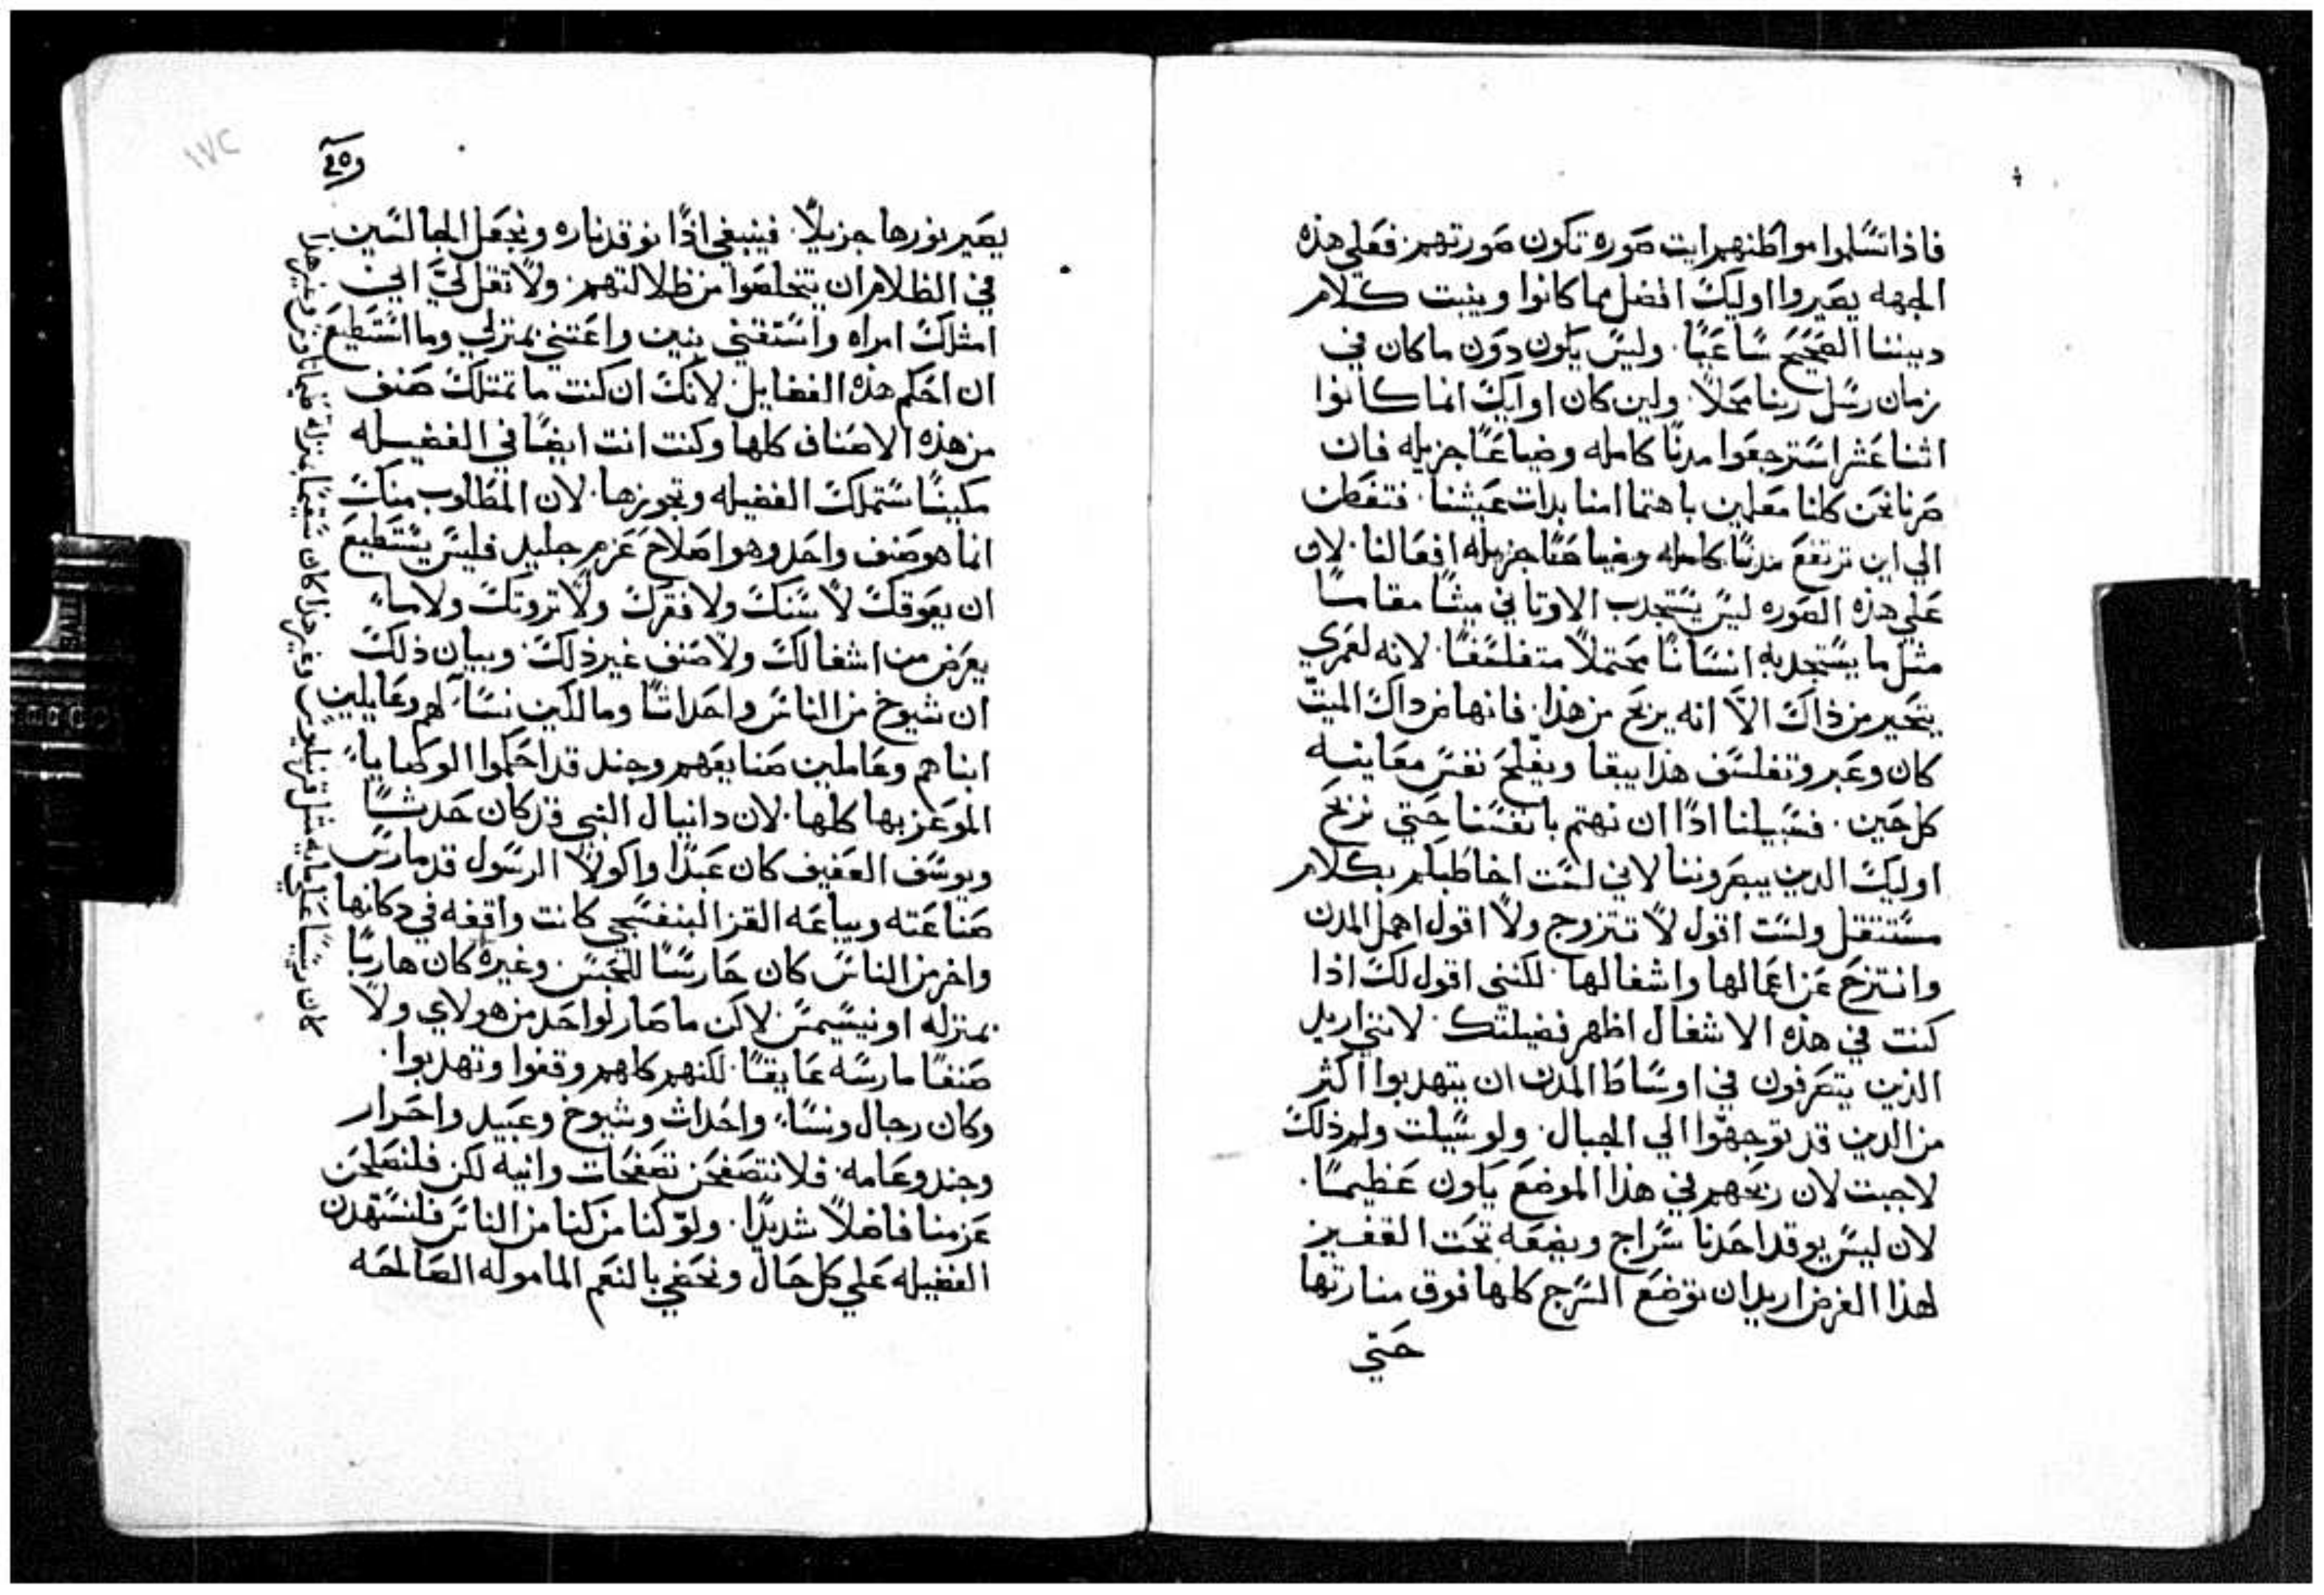 فاذا تسلموا مواطنهم ايت صوره تكون صورتهم. فعلي هذه
الجهه يصيروا اوليك افضل مما كانوا ويثبت كلام
ديننا الصحيح ساعيا. وليس يكون دون ما كان في
زمان رسل ربنا محلا. ولين كان اوليك انما كانوا
اثنا عشر استرجعوا مدنا كامله وضياعا جزيله فان
صرنا نحن كلنا معلمين باهتمامنا بدات عيشنا. فتفطن
الي اين ترتفع مدنا كامله وضياعا جزيله افعالنا. لان
علي هذه الصوره ليس يستجدب الاوتاني ميتا مقاسا
مثل ما يستجدبه انسانا محتملا متفلسفا. لانه لعمري
يتحير من ذاك الا انه يربح من هذا. فانها من داك الميت
كان وعبر وتفلسف هذا يبقا ويفلح نفس معاينيه
كل حين. فسبيلنا اذا ان نهتم بانفسنا حتي نربح
اوليك الدين يبصروننا لاني لست اخاطبكم بكلام
مستثقل ولست اقول لا تتزوج ولا اقول اهمل المدن
وانتزح عن اعمالها واشغالها. لكنني اقول لك اذا
كنت في هذه الاشغال اظهر فضيلتك. لانني اريد
الذين يتصرفون في اوساط المدن ان يتهدبوا اكثر
من الدين قد توجهوا الي الجبال. ولو سيلت ولم ذلك
لاجبت لان ربحهم في هذا الموضع يكون عظيما.
لان ليس يوقد احدنا سراج ويضعه تحت القفيز
لهذا الغرض اريد ان توضع السرج كلها فوق منارتها
حتي
١٧٢
يصير نورها جزيلا. فينبغي اذا نوقد ناره ونجعل الجالسين
في الظلام ان يتخلصوا من ظلالتهم. ولا تقل لي اني
امتلك امراه واستقني بنين واعتني بمنزلي وما استطيع
ان احكم هذه الفضايل. لانك ان كنت ما تمتلك صنف
من هذه الاصناف كلها وكنت انت ايضا في الفضيله
مكينا ستملك الفضيله وتحوزها. لان المطلوب منك
انما هو صنف واحد وهو اصلاح عزم جليل فليس يستطيع
ان يعوقك لا سنك ولا فقرك ولا تروتك ولا ما
يعرض من اشغالك ولا صنف غير ذلك. وبيان ذلك
ان شيوخ من الناس واحداثا ومالكين نسا لهم وعايلين
ابناهم وعاملين صنايعهم وجند قد احكموا الوصايا
الموعز بها كلها. لان دانيال النبي قد كان حدثا
ويوسف العفيف كان عبدا واكولا الرسول قد مارس
صناعته وبياعه القز البنفسجي كانت واقفه في دكانها
واخر من الناس كان حارسا للحبس. وغيره كان هاربا
بمنزله اونيسيمس. لاكن ما صار لواحد من هولاي ولا
صنفا مارسه عايقا. لكنهم كلهم وقفوا وتهدبوا.
وكان رجال ونسا واحداث وشيوخ وعبيد واحرار
وجند وعامه. فلا نتصفحن تصفحات وانيه لكن فلنصلحن
عزمنا فاضلا شديدا. ولو كنا من كنا من الناس فلنستهدن
الفضيله علي كل حال ونحضي بالنعم الماموله الصالحه
كان رييسا علي مايه مثل قرنيليوس وغير هذا كان سقيما بمنزله تيماتاوس وغير هذا